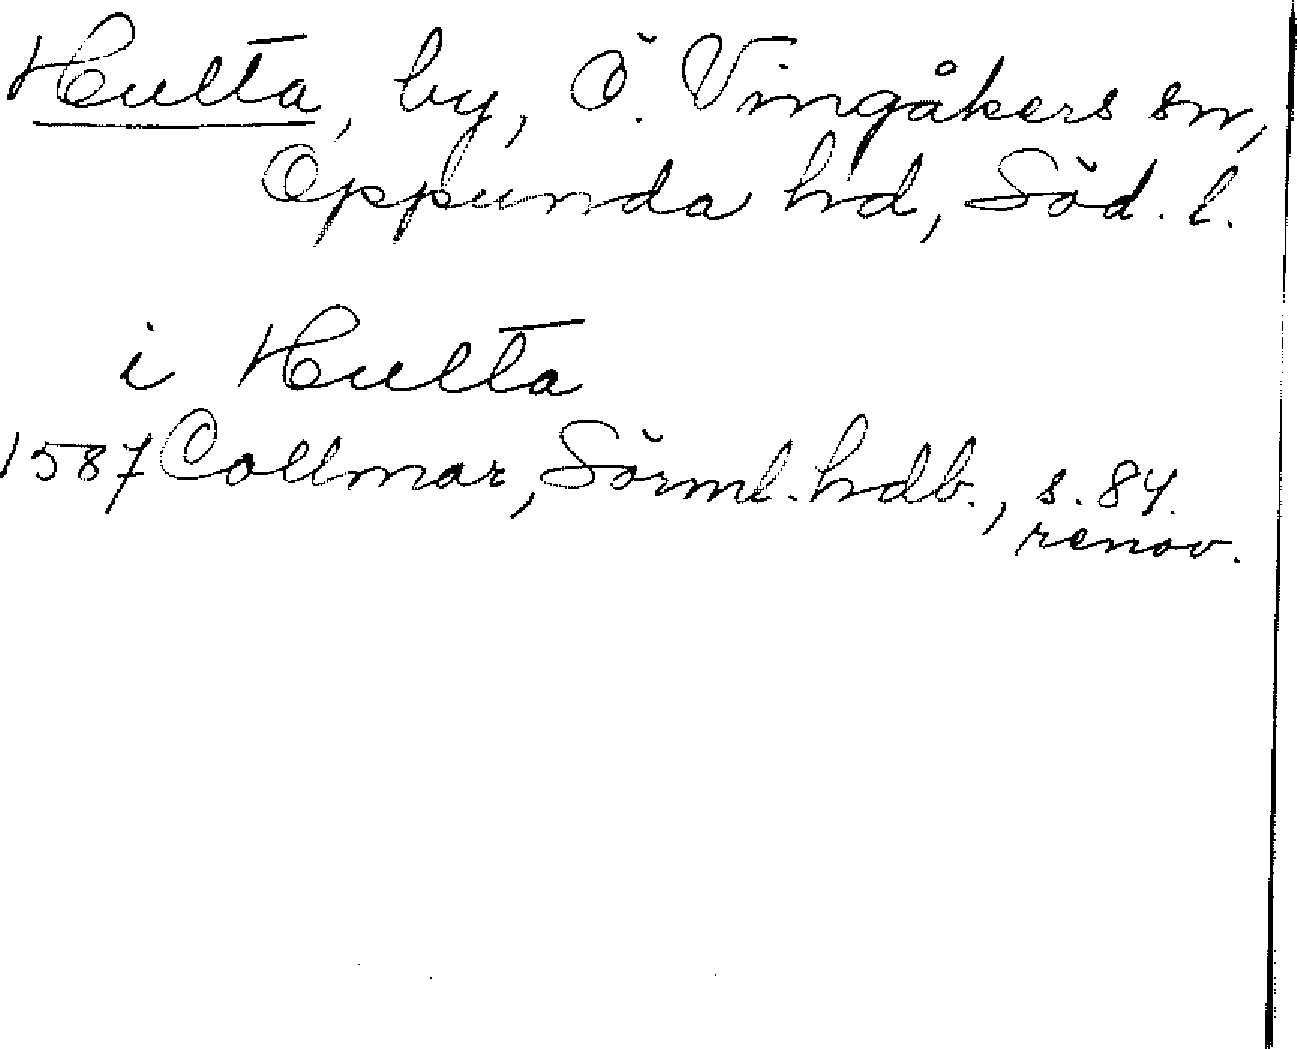 Hulta, by, Ö. Vingåkers sn,
Oppunda hd, Söd. l.
i Hulta
1587 Collmar, Sörml. hdb., s. 84.
renov.